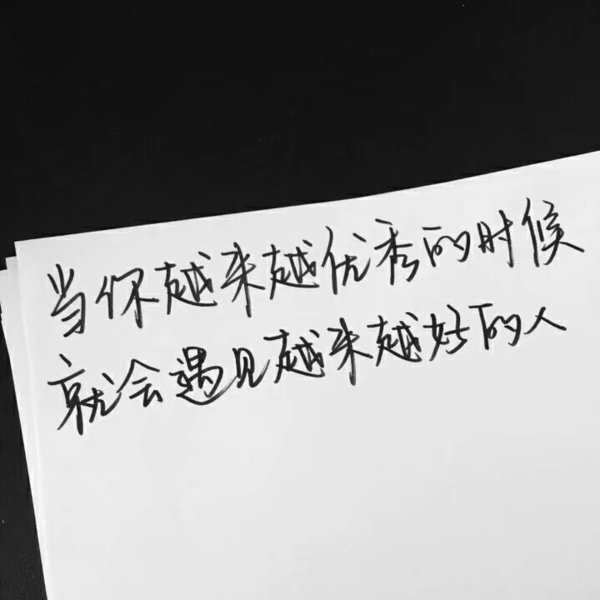 当你越来越优秀的时候
就会遇见越来越好的人